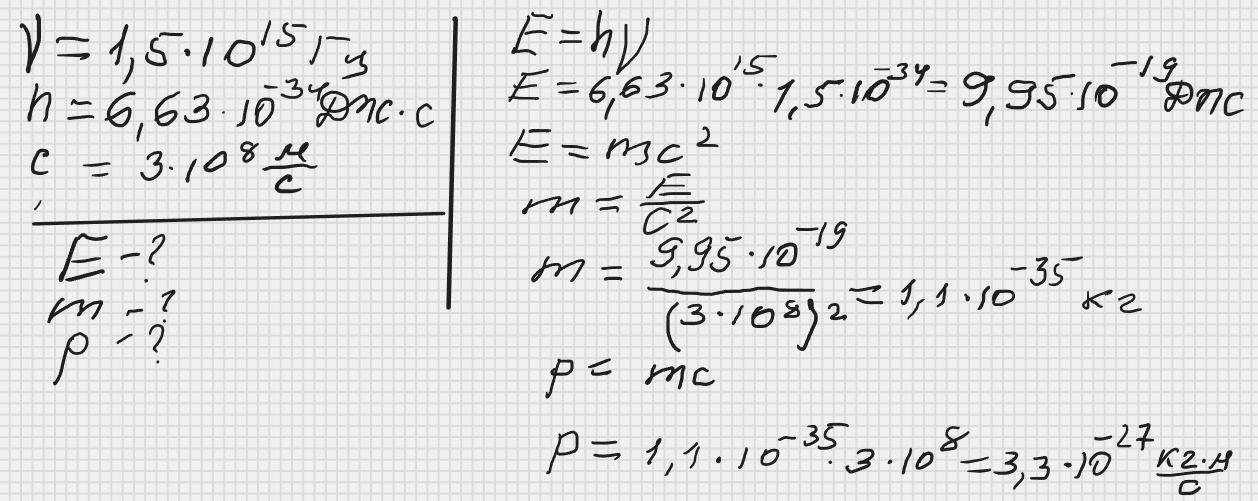 ν = 1,5·10¹⁵ Гц
h = 6,63·10⁻³⁴ Дж·с
c = 3·10⁸ м/с
E - ?
m - ?
p - ?
E = hν
E = 6,63·10¹⁵·1,5·10⁻³⁴ = 9,95·10⁻¹⁹ Дж
E = mc²
m = E/c²
m = 9,95·10⁻¹⁹/(3·10⁸)² = 1,1·10⁻³⁵ кг
p = mc
p = 1,1·10⁻³⁵·3·10⁸ = 3,3·10⁻²⁷ кг·м/с